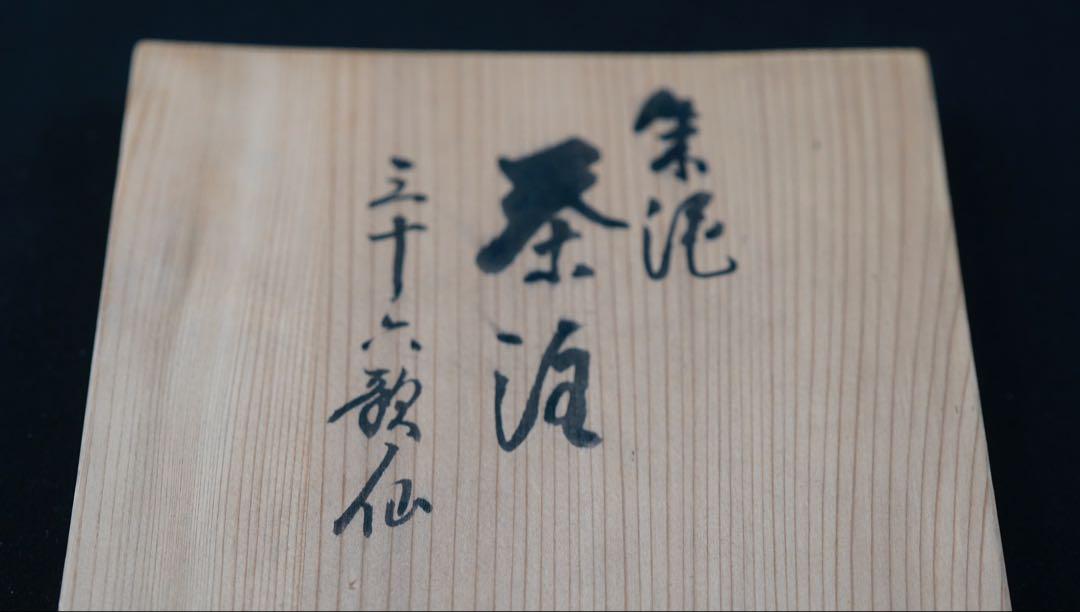 朱泥
茶注
三十六歌仙